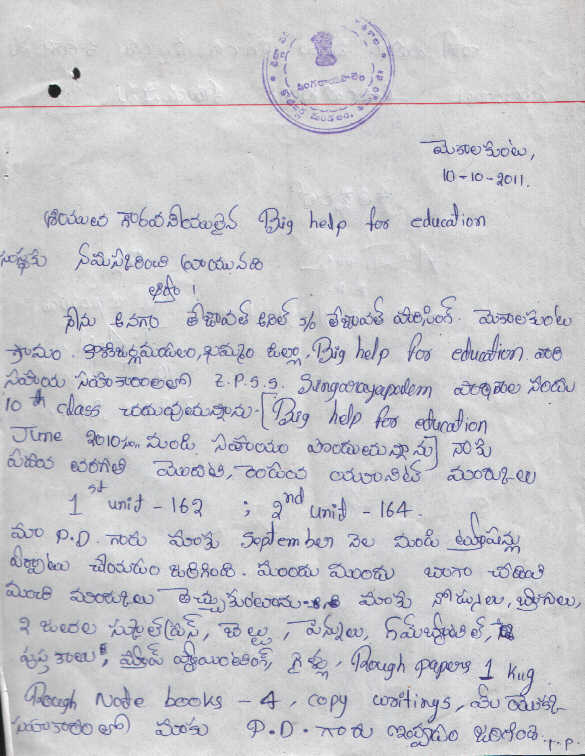 సింగరాయపాలెం
మేకలకుంట,
10-10-2011.
శ్రీయుత గౌరవనీయులైన Big help for education
సంస్థకు నమస్కరించి వ్రాయునది
ఆర్యా!
నేను అనగా తేజావత్ అనిల్ S/o తేజావత్ హరిసింగ్. మేకలకుంట
గ్రామం. మండలం, ఖమ్మం జిల్లా, Big help for education వారి
సహాయ సహకారాలతో Z.P.S.S. Singarayapalem పాఠశాల నందు
10th class చదువుచున్నాను. [Big help for education
June 2010 నుండి సహాయం పొందుచున్నాను] నాకు
పదవ తరగతి మొదటి, రెండవ యూనిట్ మార్కులు
1st unit - 162 ; 2nd unit - 164.
మా P.D. గారు మాకు September నెల నుండి ట్యూషన్లు
ఏర్పాటు చేయడం జరిగింది. ముందు ముందు బాగా చదివి
మంచి మార్కులు తెచ్చుకుంటాను. మాకు నోట్సులు, బ్యాగులు,
2 జతల స్కూల్ డ్రస్, బెల్టు, పెన్నులు, గమ్ బాటిల్,
పుస్తకాలు, మ్యాప్ పాయింటింగ్, గైడ్లు, Rough papers 1 kg
Rough Node books - 4, copy writings, మీ యొక్క
సహకారంతో మాకు P.D. గారు ఇవ్వడం జరిగింది. T.P.